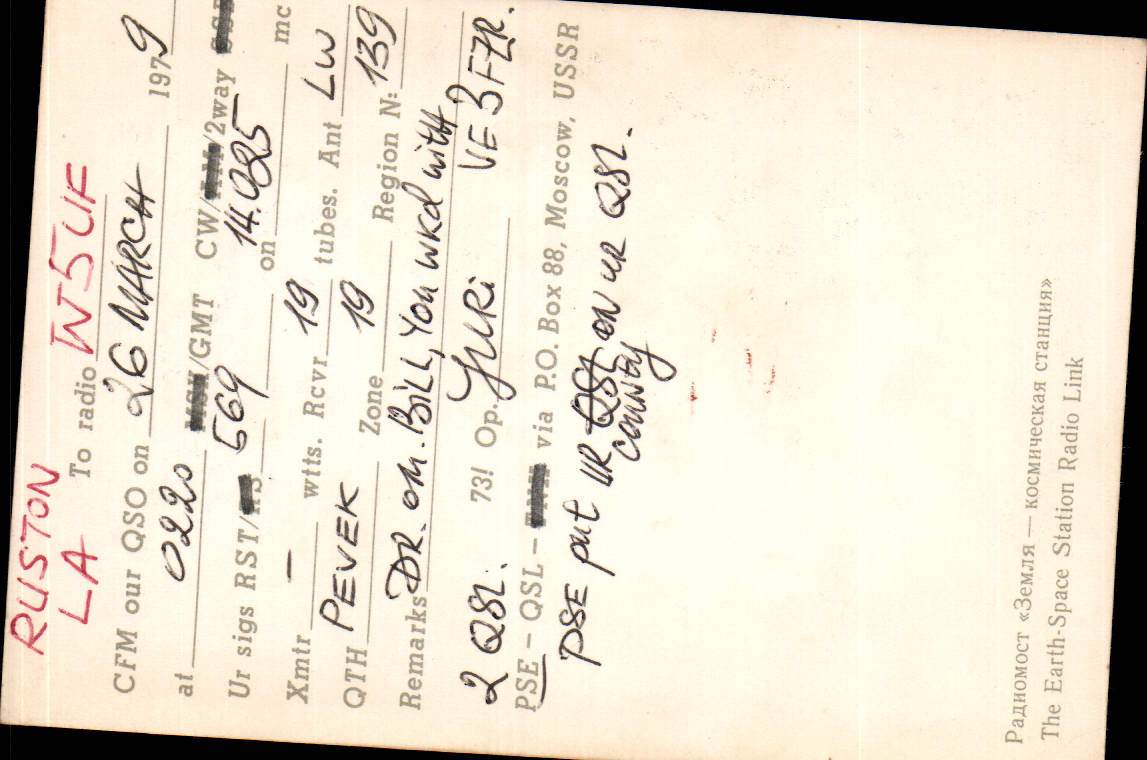 RUSTON
LA To radio W5UF
CFM our QSO on 26 MARCH 1979
at 0220 MSK/GMT CW/AM/2way SSB
Ur sigs RST/RS 569 on 14.025 mc
Xmtr — wtts. Rcvr 19 tubes. Ant LW
QTH PEVEK Zone 19 Region N: 139
Remarks DR. OM. BILL, You wkd with
2 QSL. 73! Op. YURi VE3FZR.
PSE – QSL – via P.O. Box 88, Moscow, USSR
PSE put UR QSL on ur QSL.
county
Радиомост «Земля — космическая станция»
The Earth-Space Station Radio Link